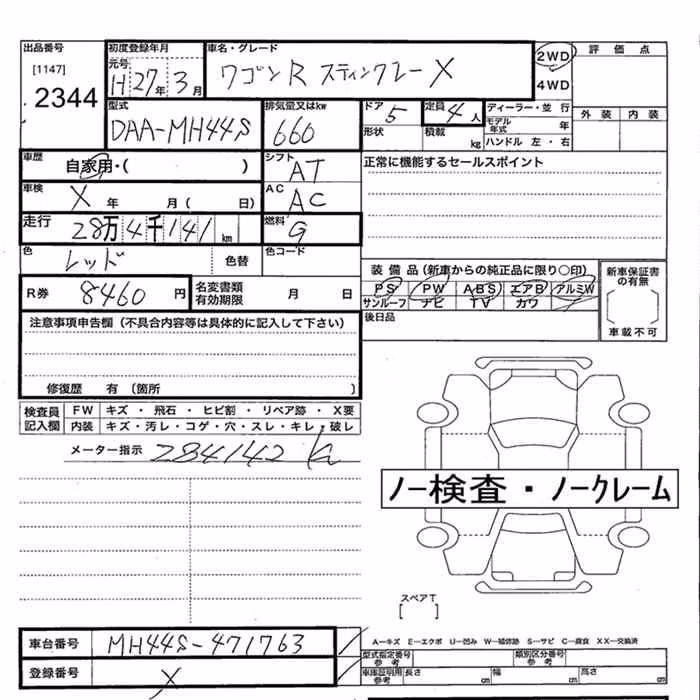 出品番号
[1147]
2344
初度登録年月
元号
H 27年 3月
車名・グレード
ワゴンR スティングレー X
2WD
4WD
評価点
外装 内装
型式
DAA-MH44S
排気量又はkw
660
ドア 5
形状
定員 4人
積載 kg
ディーラー・並行
モデル年式 年
ハンドル 左・右
車歴
自家用・( )
シフト
AT
正常に機能するセールスポイント
車検
X 年 月( 日)
AC
AC
走行
28万4千141km
燃料
G
色
レッド
色替
色コード
R券 8460 円
名変書類
有効期限 月 日
装備品(新車からの純正品に限り○印)
PS PW ABS エアB アルミW
サンルーフ ナビ TV カワ
新車保証書
の有無
車載不可
後日品
注意事項申告欄(不具合内容等は具体的に記入して下さい)
修復歴 有(箇所 )
検査員
記入欄
FW キズ・飛石・ヒビ割・リペア跡・X要
内装 キズ・汚レ・コゲ・穴・スレ・キレ・破レ
メーター指示 284142 K
ノー検査・ノークレーム
スペアT
[ ]
車台番号 MH44S-471763
登録番号 X
A―キズ E―エクボ U―凹み W―補修跡 S―サビ C―腐食 XX―交換済
型式指定番号
参考
類別区分番号
参考
車庫証明用
参考
長さ cm 幅 cm 高さ cm